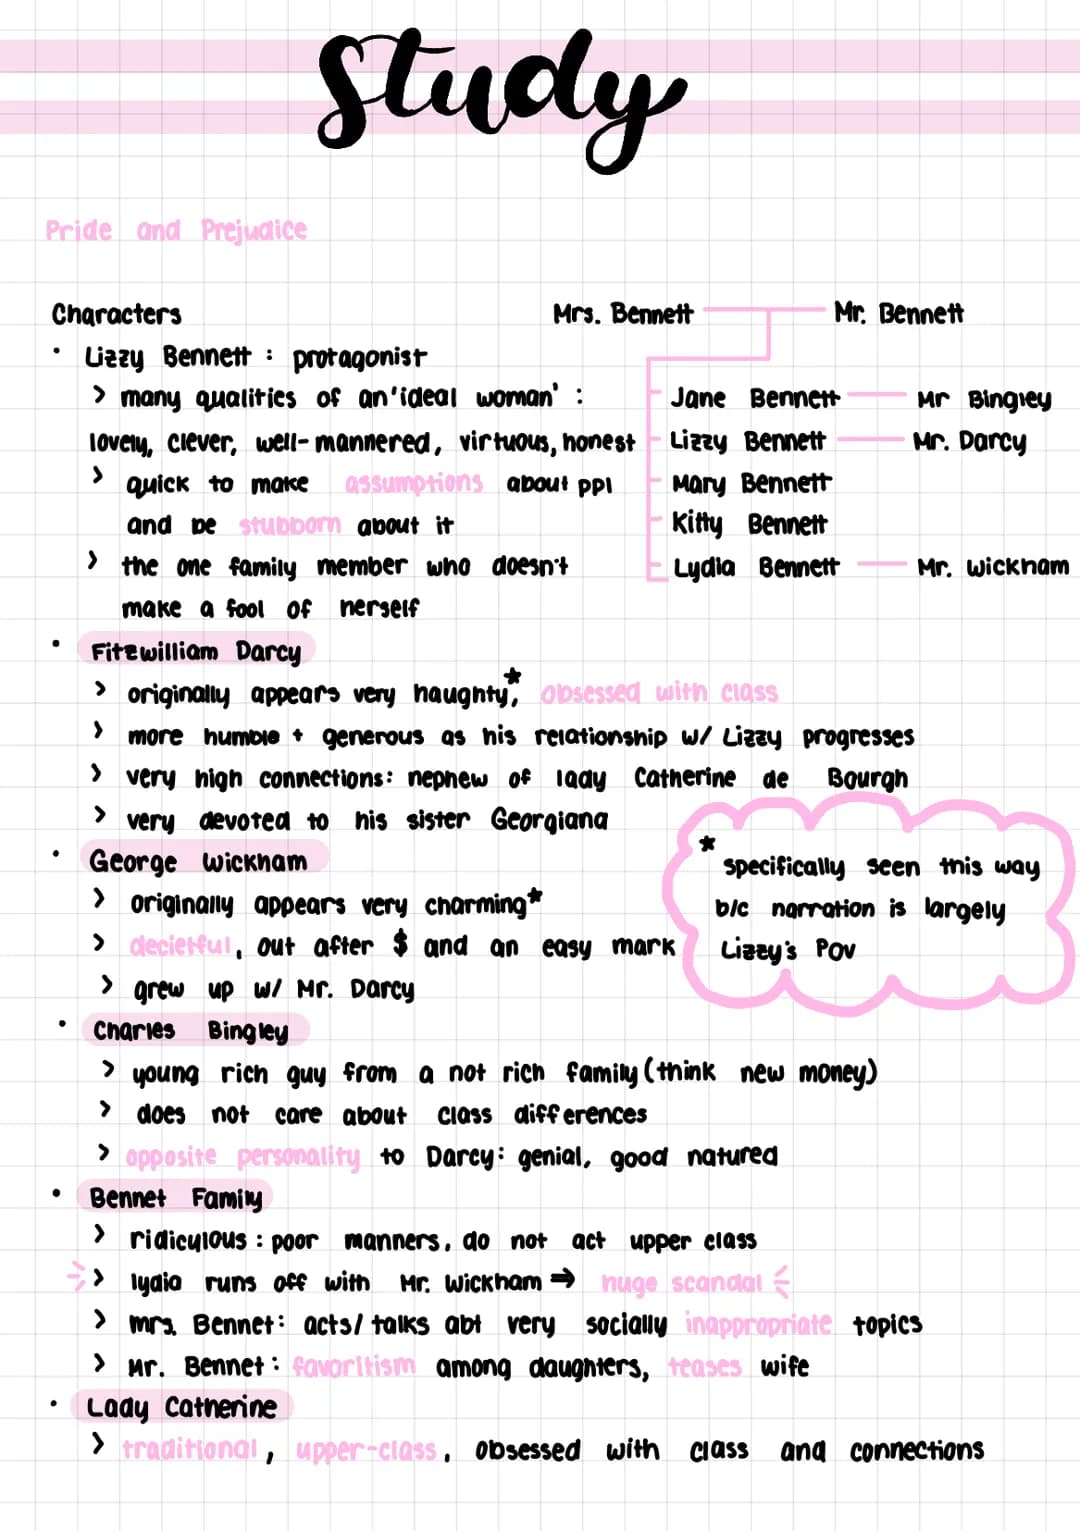 Study
Pride and Prejudice
Characters
Mrs. Bennett
Mr. Bennett
• Lizzy Bennett : protagonist
> many qualities of an 'ideal woman' :
lovely, clever, well-mannered, virtuous, honest
> quick to make assumptions about ppl
and be stubborn about it
> the one family member who doesn't
make a fool of herself
Jane Bennett Mr Bingley
Lizzy Bennett Mr. Darcy
Mary Bennett
Kitty Bennett
Lydia Bennett Mr. Wickham
• Fitzwilliam Darcy
> originally appears very haughty*, obsessed with class
> more humble + generous as his relationship w/ Lizzy progresses
> very high connections: nephew of lady Catherine de Bourgh
> very devoted to his sister Georgiana
• George Wickham
> originally appears very charming*
> decietful, out after $ and an easy mark
> grew up w/ Mr. Darcy
* specifically seen this way
b/c narration is largely
Lizzy's POV
• Charles Bingley
> young rich guy from a not rich family (think new money)
> does not care about class differences
> opposite personality to Darcy: genial, good natured
• Bennet Family
> ridiculous : poor manners, do not act upper class
> lydia runs off with Mr. Wickham ⇒ huge scandal
> mrs. Bennet: acts/talks abt very socially inappropriate topics
> Mr. Bennet: favoritism among daughters, teases wife
• Lady Catherine
> traditional, upper-class, obsessed with class and connections